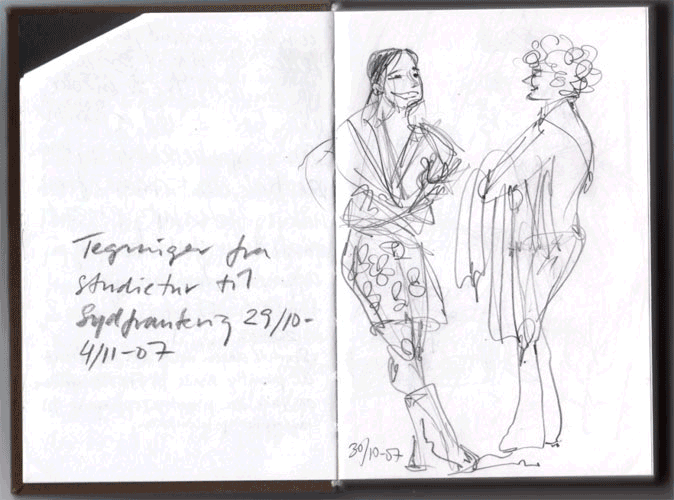 Tegninger fra
studietur til
Sydfrankrig 29/10-
4/11-07
30/10-07